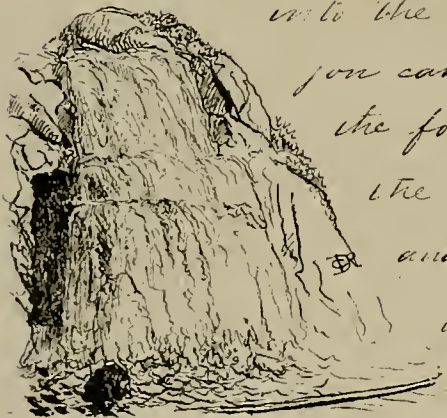 into the
you can
the fo
the
and